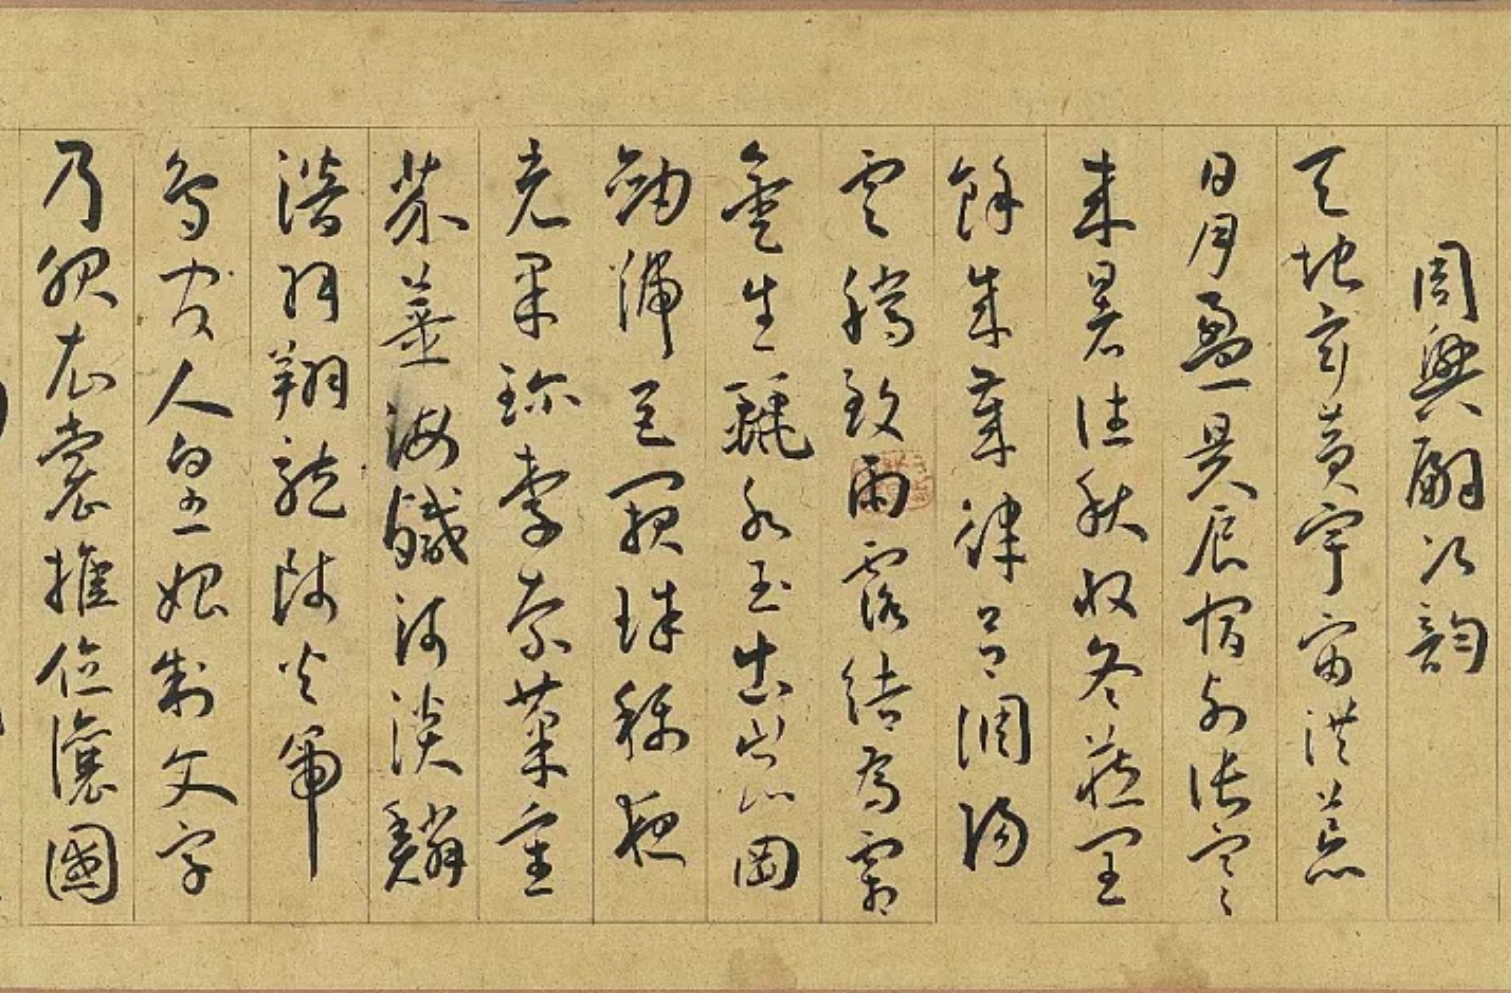 周興嗣次韻
天地玄黃宇宙洪荒
日月盈昃辰宿列張寒
来暑往秋收冬藏閏
餘成歲律呂調陽
雲騰致雨露結為霜
金生麗水玉出崑岡
劍號巨闕珠稱夜
光果珍李柰菜重
芥薑海鹹河淡鱗
潛羽翔龍師火帝
鳥官人皇始制文字
乃服衣裳推位讓國